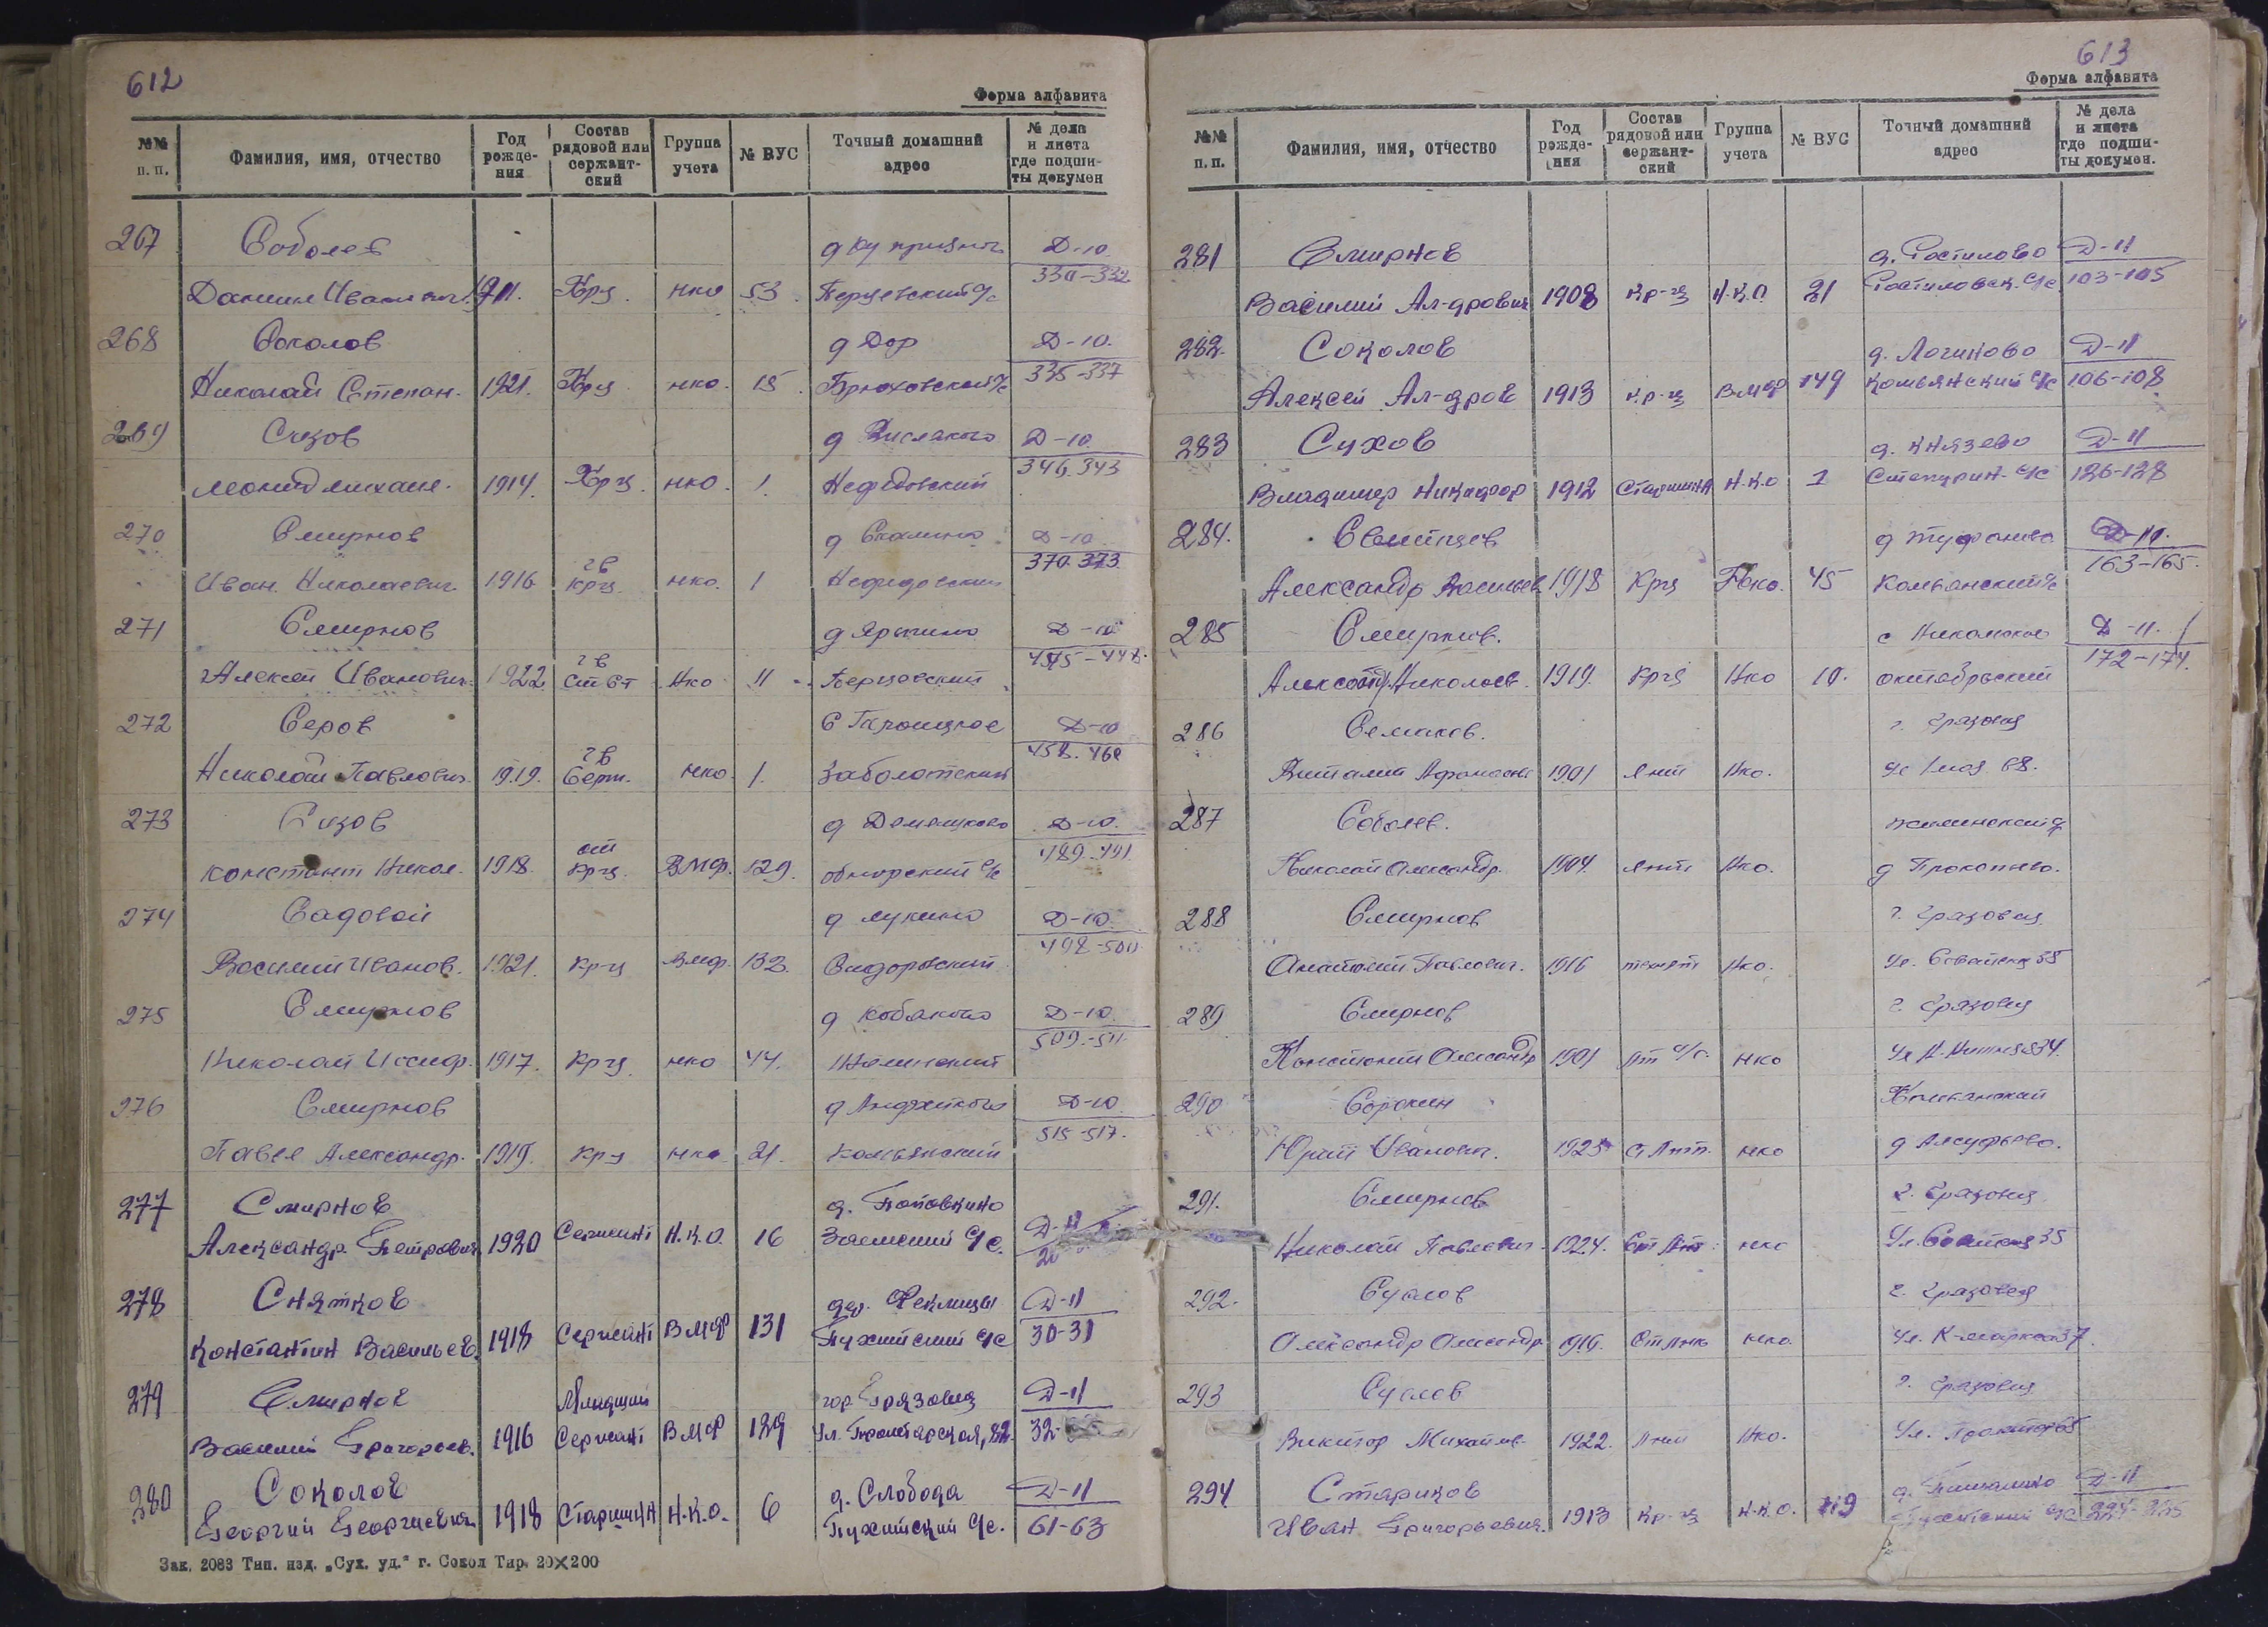 612
Форма алфавита
№№ п. п. Фамилия, имя, отчество Год рожде-ния Состав рядовой или сержант-ский Группа учета № ВУС Точный домашний адрес № дела и листа где подши-ты докумен
267 Соболев Д-10
Даниил Иванович 1911. Крц. нко 53. Перцевский с/с 330-332
268 Соколов д Дор Д-10.
Николай Степан. 1921. Крц нко. 15. Брюховский с/с 335-337
269 Сизов Д-10
Леонид михаил. 1914. Крц. нко. 1. Нефедовский
270 Смирнов д Скалино Д-10
гв 370-373
Иван Николаевич 1916 крц. нко. 1 Нефедовский
271 Смирнов д Яркино Д-10
гв
Алексей Иванович 1922 Ст Ст Нко 11 Перцевский
272 Серов Д-10
гв 458-460
Николай Павлович. 1919. Серж. нко. 1. Заболотский
273 Сизов Д-10.
ст 489-491
констант Никол. 1918. Крц. ВМф. 129. обнорский с/с
274 Садовой д лукино Д-10.
498-500
Василий Иванов. 1921. Кр-ц Вмф. 132. Сидорский
275 Смирнов д кобяково Д-10.
509-511
Николай Иосиф. 1917. Крц. нко 44.
276 Смирнов Д-10
515-517.
Павел Александр. 1919. Кр-ц нко 21. Комьянский
277 Смирнов д. Поповкино
Александр. Петрович 1920 Сержант Н.К.О. 16 Заемский с/с.
278 Снятков дер. Феклицы Д-11
Константин Васильев. 1918 Сержант ВМФ 131 Пухитский с/с 30-31
279 Смирнов Младший гор Грязовец Д-11
Василий Григорьев. 1916 Сержант ВМФ 129 Ул. Пролетарская, 82. 32-
280 Соколов д. Слобода Д-11
Георгий Георгиевич 1918 Старшина Н.К.О. 6 Пухитский с/с. 61-63
Зак. 2083 Тип. изд. „Сух. уд.“ г. Сокол Тир. 20×200
613
Форма алфавита
№№ п. п. Фамилия, имя, отчество Год рожде-ния Состав рядовой или сержант-ский Группа учета № ВУС Точный домашний адрес № дела и листа где подши-ты докумен.
281 Смирнов д. Ростилово Д-11
Василий Ал-дрович 1908 Кр-ц Н.К.О. 21 Ростиловск. с/с 103-105
282. Соколов д. Логиново Д-11
Алексей Ал-дров 1913 кр-ц ВМФ 149 Комьянский с/с 106-108
283 Сухов д. Князево Д-11
Владимир Никифор 1912 Старшина Н.К.О 1 Степурин. с/с 126-128
284. Свитцов д Туфаново Д-11.
163-165.
Александр Васильев 1918 Крц Нко. 45 Комьянский с/с
285 Смирнов. с Никольское Д-11.
172-174.
Николаев. 1919. Крц Нко 10. октябрьский
286 Семаков. г. Грязовец
Виталий Афанасьев 1901 Лнт Нко. ул 1 мая 68.
287 Соболев.
Николай Александр. 1904. Лнт Нко. д Прокопьево.
288 Смирнов г. Грязовец
Анатолий Павлович. 1916 Нко.
289 Смирнов г. Грязовец
Константин Александр 1901 нко
290 Сорокин Комьянский
Юрий Иванович. 1925 нко
291. Смирнов г. Грязовец
Николай Павлович 1924. нко
292. Суслов г. Грязовец
Александр Александр 1916. нко. Ул. К-маркса 37.
293 Суслов г. Грязовец
Виктор Михайлов. 1922. Нко.
294 Стариков Д-11
Иван Григорьевич. 1913 Кр-ц Н.К.О.